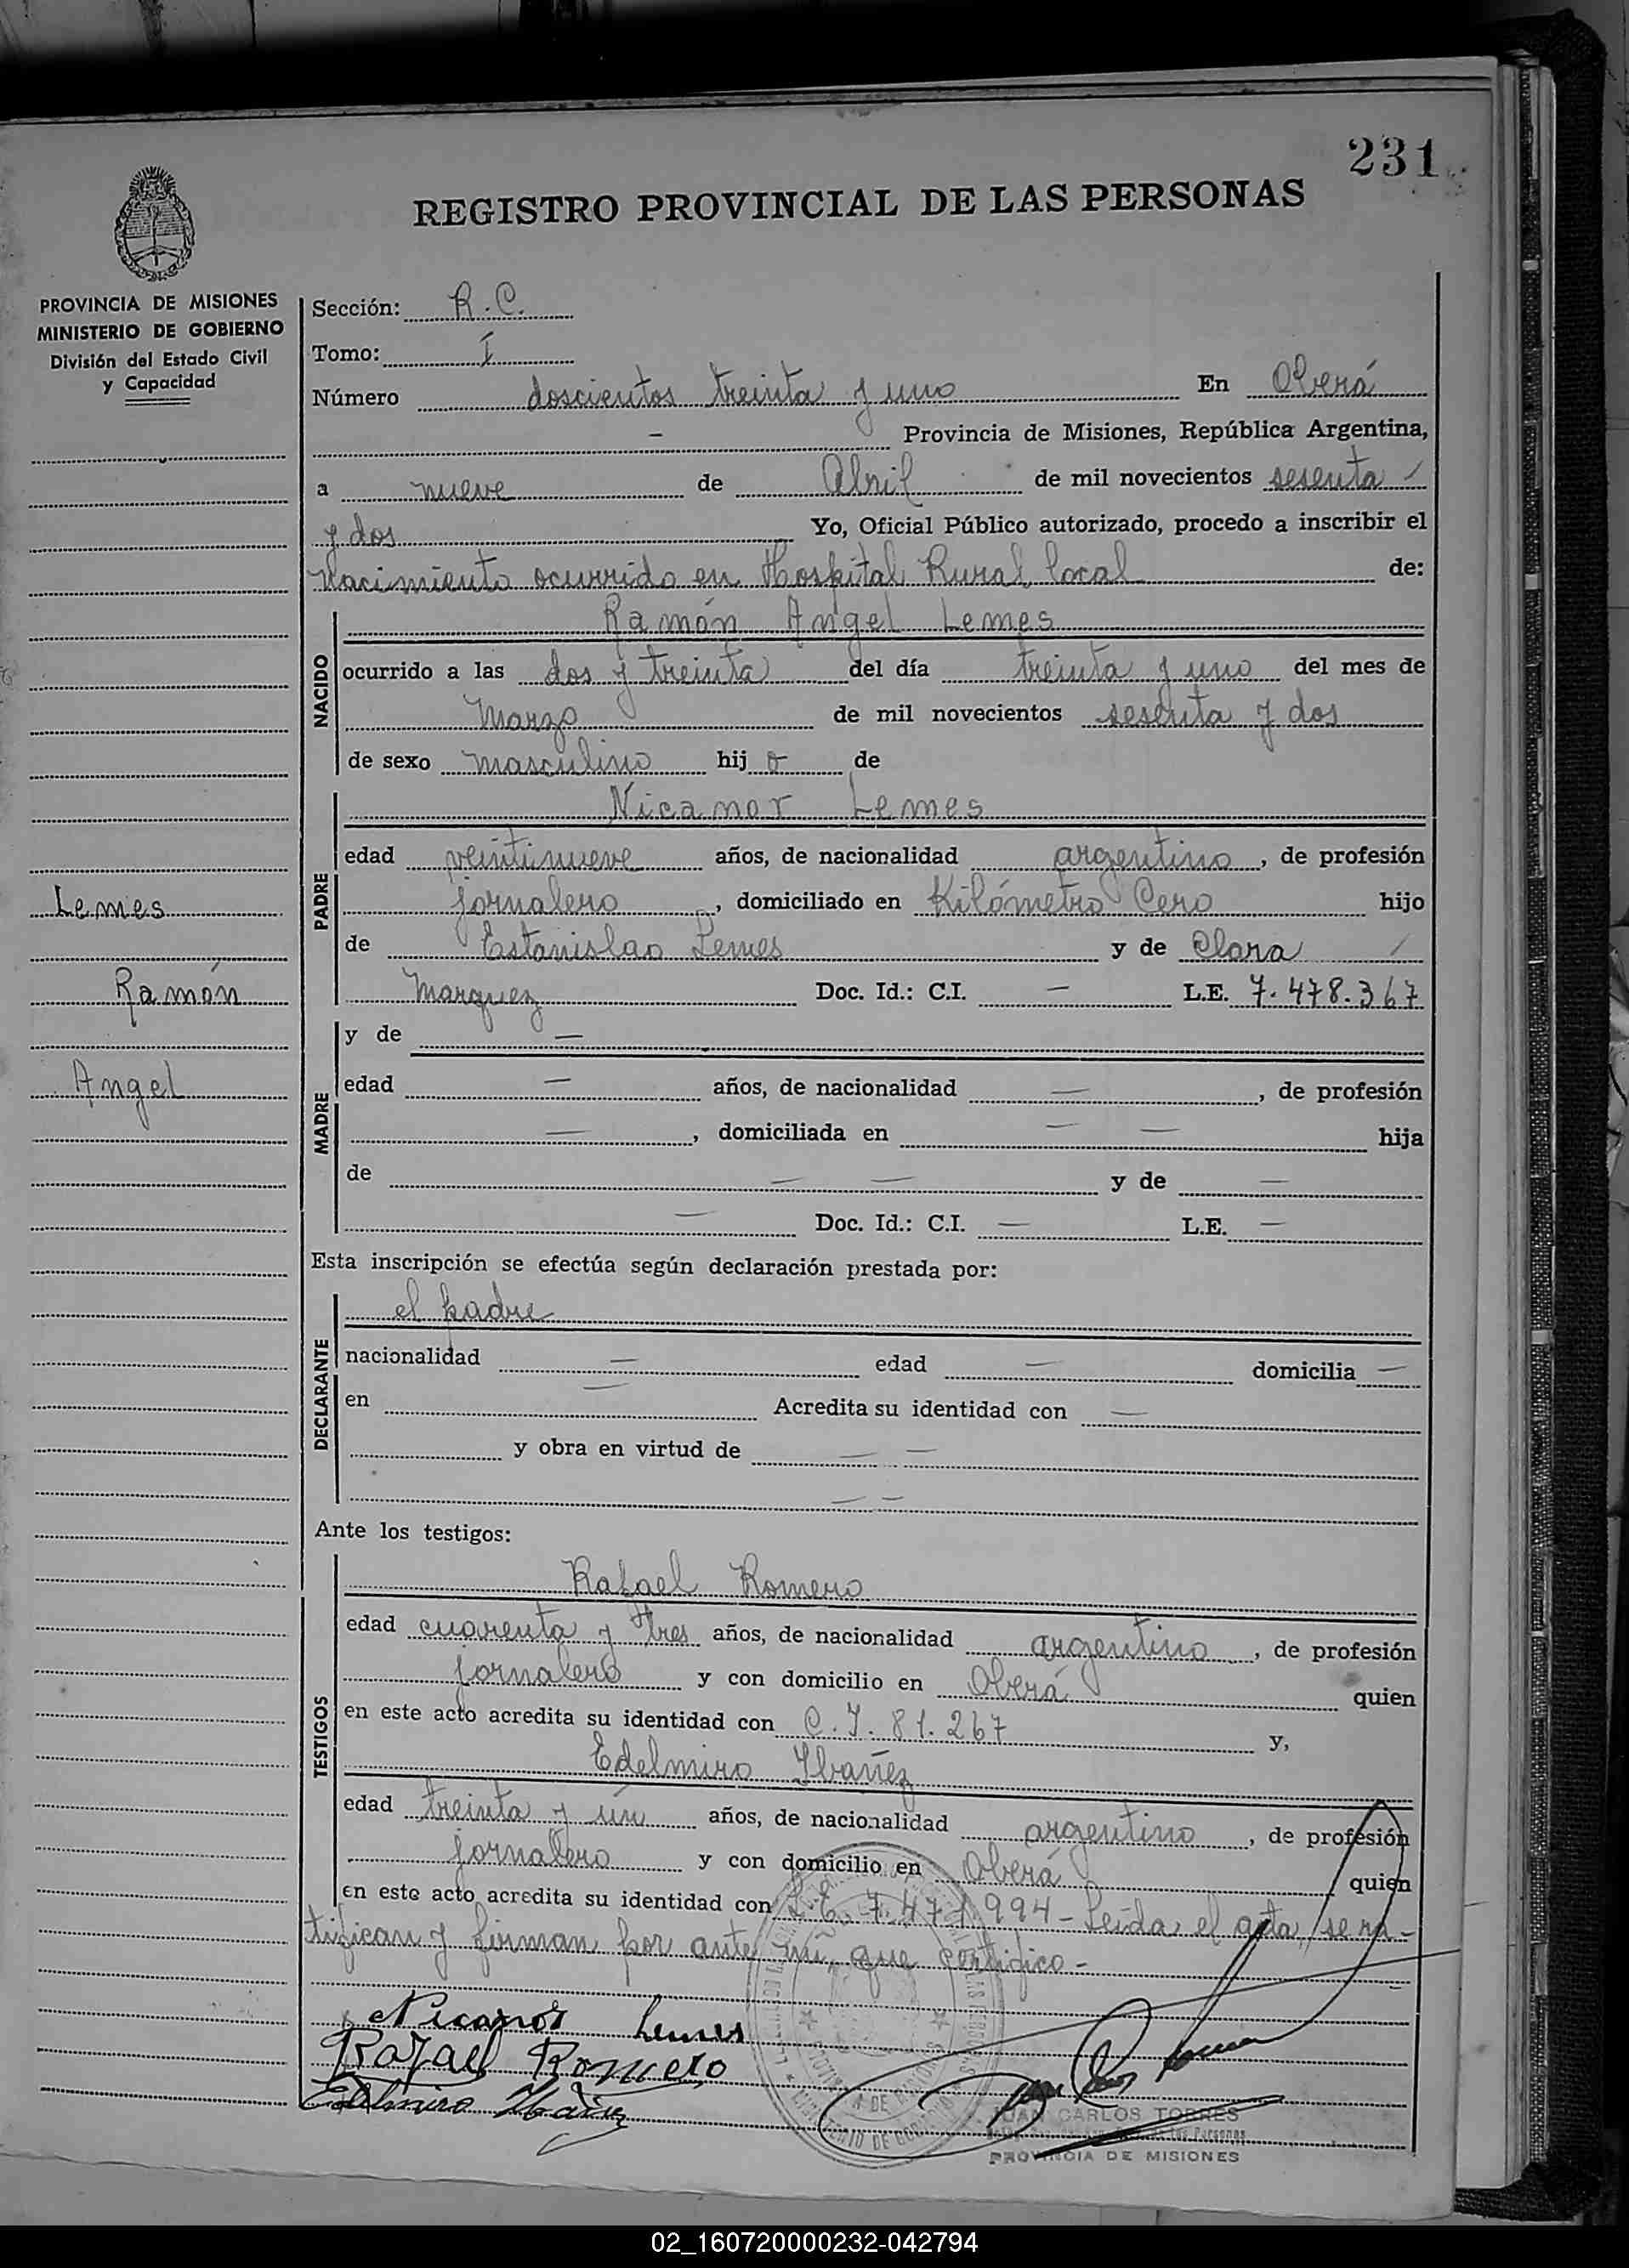 231
REGISTRO PROVINCIAL DE LAS PERSONAS
PROVINCIA DE MISIONES
MINISTERIO DE GOBIERNO
División del Estado Civil
y Capacidad
Lemes
Ramón
Angel
Sección: R.C.
Tomo: I
Número doscientos treinta y uno En Oberá
— Provincia de Misiones, República Argentina,
a nueve de Abril de mil novecientos sesenta
y dos Yo, Oficial Público autorizado, procedo a inscribir el
Nacimiento ocurrido en Hospital Rural local de:
NACIDO
Ramón Angel Lemes
ocurrido a las dos y treinta del día treinta y uno del mes de
Marzo de mil novecientos sesenta y dos
de sexo masculino hijo de
PADRE
Nicanor Lemes
edad veintinueve años, de nacionalidad argentino, de profesión
jornalero, domiciliado en Kilómetro Cero hijo
de Estanislao Lemes y de Clara
Marquez Doc. Id.: C.I. — L.E. 7.478.367
MADRE
y de —
edad — años, de nacionalidad —, de profesión
—, domiciliada en — — hija
de — — y de —
— Doc. Id.: C.I. — L.E. —
Esta inscripción se efectúa según declaración prestada por:
DECLARANTE
el padre
nacionalidad — edad — domicilia —
en — Acredita su identidad con —
y obra en virtud de — —
— —
Ante los testigos:
TESTIGOS
Rafael Romero
edad cuarenta y tres años, de nacionalidad argentino, de profesión
jornalero y con domicilio en Oberá quien
en este acto acredita su identidad con C.I. 81.267 y,
Edelmiro Ibañez
edad treinta y un años, de nacionalidad argentino, de profesión
jornalero y con domicilio en Oberá quien
en este acto acredita su identidad con L.E. 7.471.994 - Leída el acta, se ra-
tifican y firman por ante mí, que certifico -
Nicanor Lemes
Rafael Romero
Edelmiro Ibañez
JUAN CARLOS TORRES
PROVINCIA DE MISIONES
02_160720000232-042794